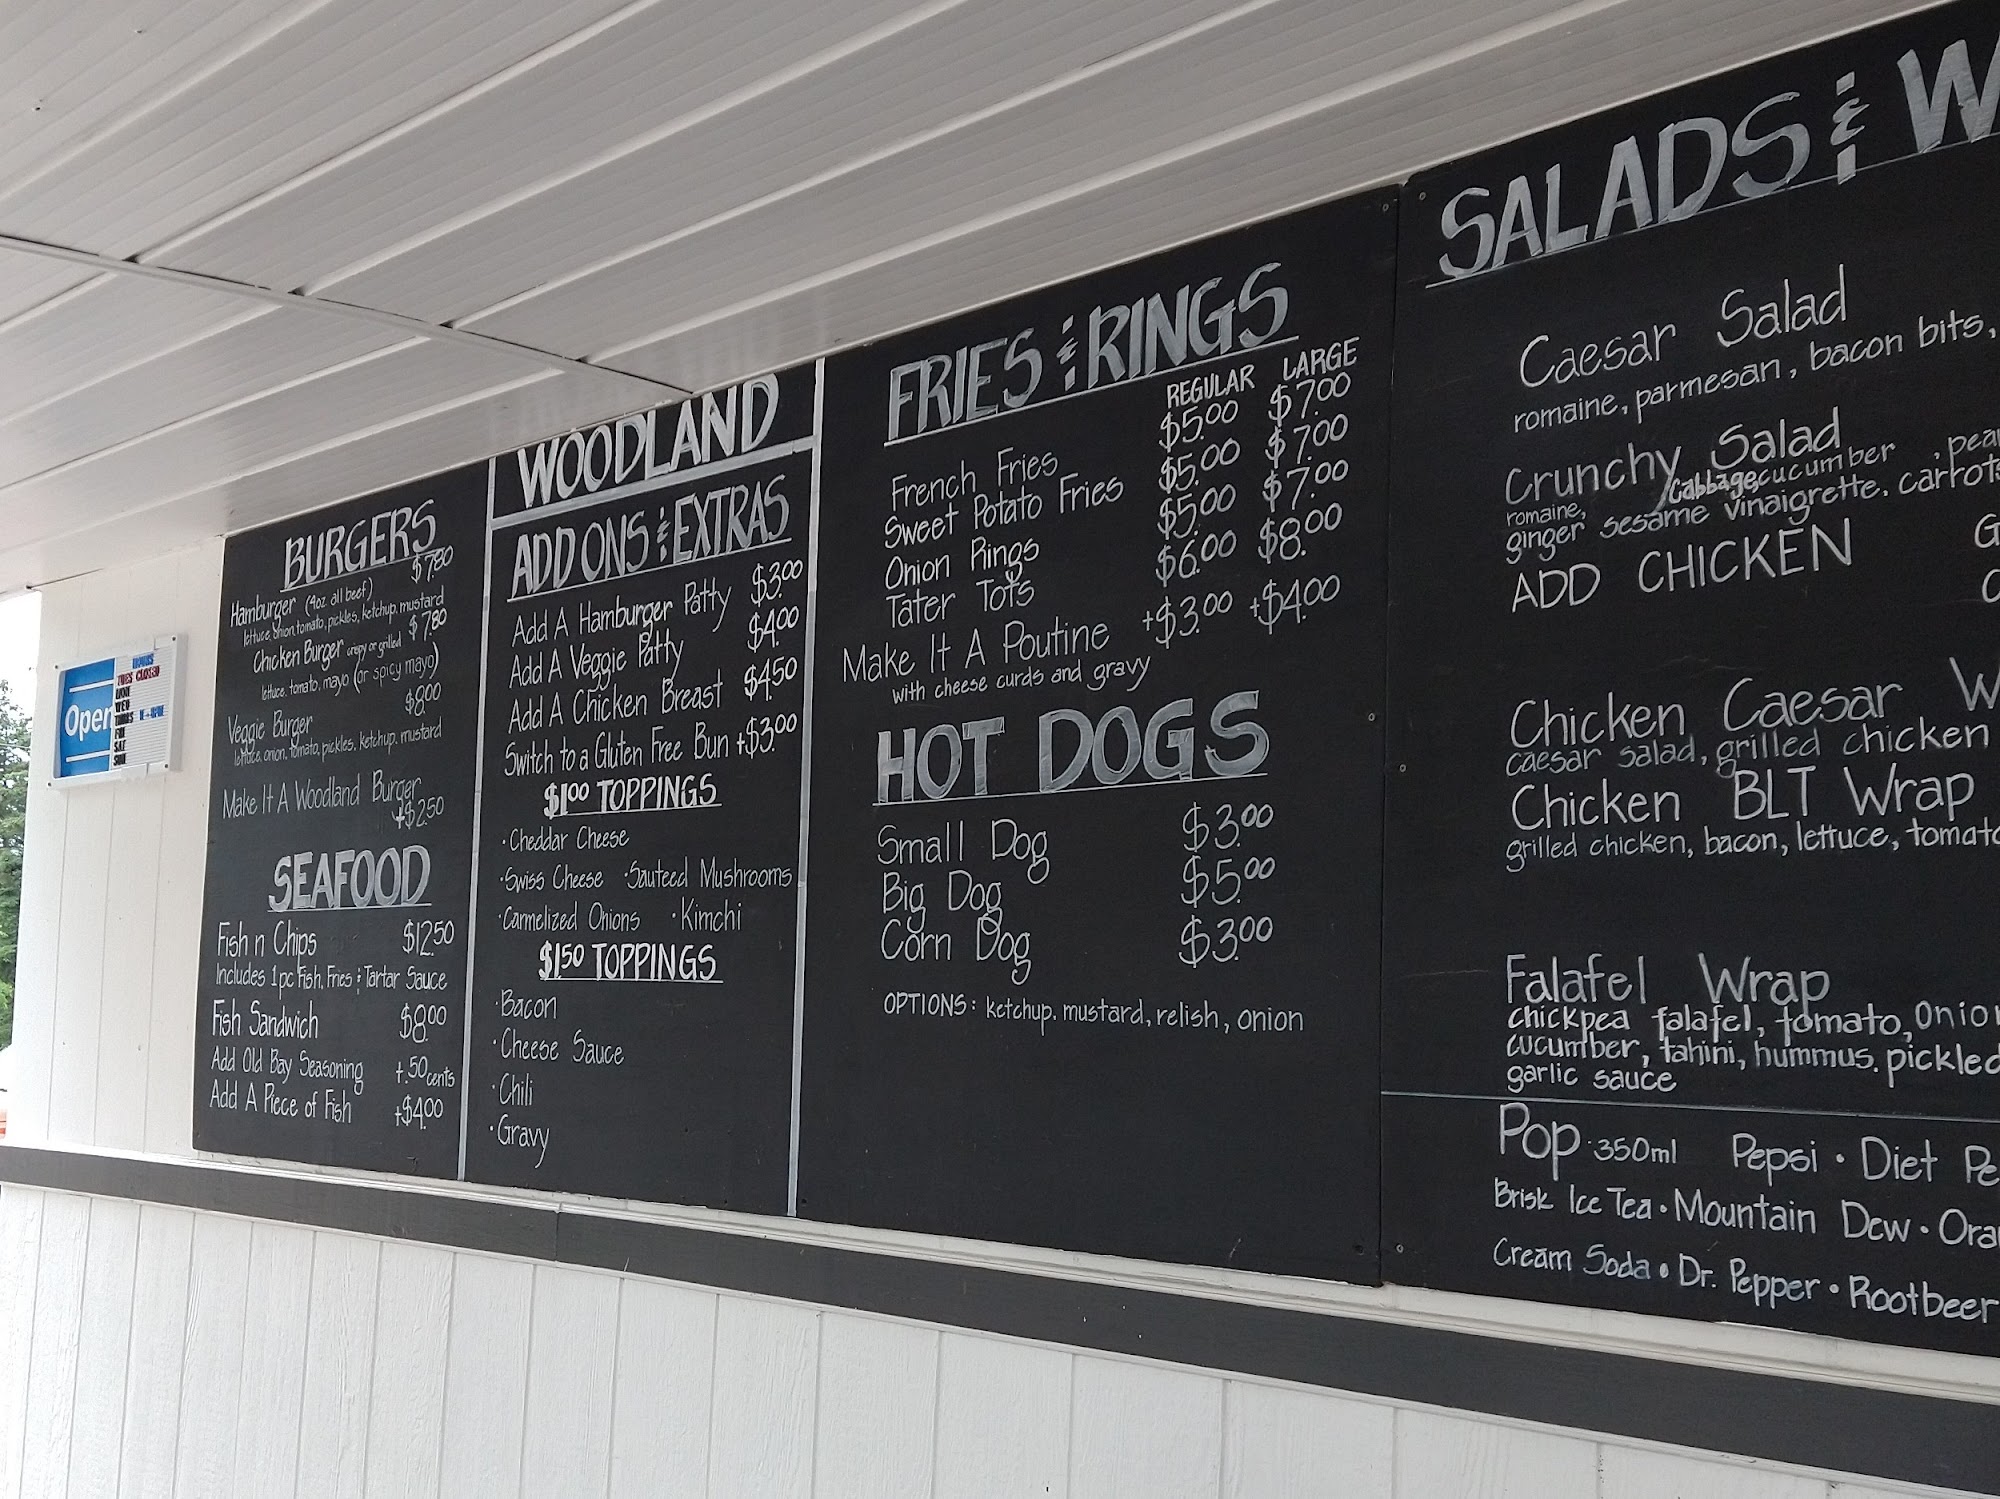 BURGERS
Hamburger (4oz all beef) $7.80
lettuce, onion, tomato, pickles, ketchup, mustard
Chicken Burger crispy or grilled $7.80
lettuce, tomato, mayo (or spicy mayo)
Veggie Burger $8.00
lettuce, onion, tomato, pickles, ketchup, mustard
Make It A Woodland Burger
+$2.50
SEAFOOD
Fish n Chips $12.50
Includes 1pc Fish, Fries & Tartar Sauce
Fish Sandwich $8.00
Add Old Bay Seasoning +.50 cents
Add A Piece of Fish +$4.00
WOODLAND
ADD ONS & EXTRAS
Add A Hamburger Patty $3.00
Add A Veggie Patty $4.00
Add A Chicken Breast $4.50
Switch to a Gluten Free Bun +$3.00
$1.00 TOPPINGS
·Cheddar Cheese
·Swiss Cheese ·Sauteed Mushrooms
·Carmelized Onions ·Kimchi
$1.50 TOPPINGS
·Bacon
·Cheese Sauce
·Chili
·Gravy
FRIES & RINGS
REGULAR LARGE
French Fries $5.00 $7.00
Sweet Potato Fries $5.00 $7.00
Onion Rings $5.00 $7.00
Tater Tots $6.00 $8.00
Make It A Poutine +$3.00 +$4.00
with cheese curds and gravy
HOT DOGS
Small Dog $3.00
Big Dog $5.00
Corn Dog $3.00
OPTIONS: ketchup, mustard, relish, onion
SALADS & W
Caesar Salad
romaine, parmesan, bacon bits,
Crunchy Salad
romaine, Cabbage, cucumber, pea
ginger sesame vinaigrette, carrots
ADD CHICKEN
Chicken Caesar W
caesar salad, grilled chicken
Chicken BLT Wrap
grilled chicken, bacon, lettuce, tomato
Falafel Wrap
chickpea falafel, tomato, onion
cucumber, tahini, hummus, pickled
garlic sauce
Pop · 350ml Pepsi · Diet Pe
Brisk Ice Tea · Mountain Dew · Ora
Cream Soda · Dr. Pepper · Rootbeer
Open
HOURS
TUES CLOSED
MON
WED
THURS
FRI
SAT
SUN